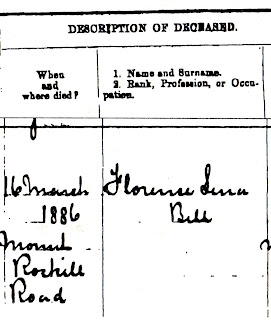 DESCRIPTION OF DECEASED.
When
and
where died?
1. Name and Surname.
2. Rank, Profession, or Occu-
pation.
16 March
1886
Florence
Bell
Mount
Roskill
Road